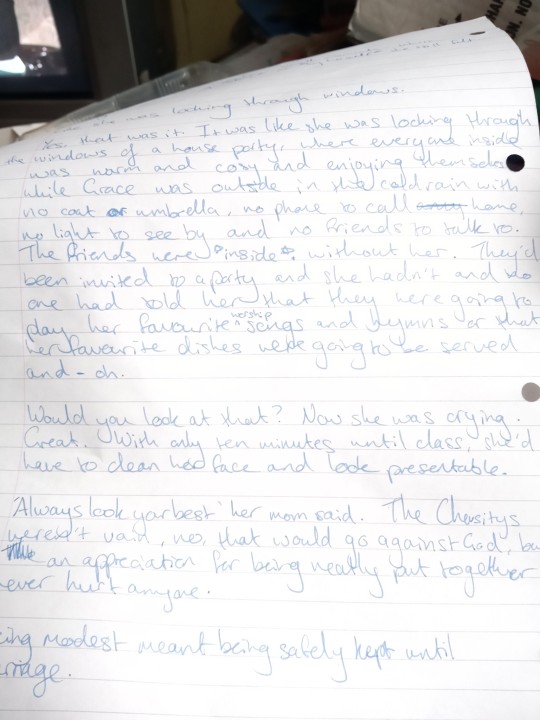 she was looking through windows.
Yes, that was it. It was like she was looking through
the windows of a house party, where everyone inside
was warm and cosy and enjoying themselv
while Grace was outside in the cold rain with
no coat or umbrella, no phone to call home,
no light to see by and no friends to talk to.
The friends were inside without her. They'd
been invited to a party and she hadn't and no
one had told her that they were going to
play her favourite worship songs and hymns or that
her favourite dishes were going to be served
and - oh.
Would you look at that? Now she was crying.
Great. With only ten minutes until class, she'd
have to clean her face and look presentable.
'Always look your best' her mom said. The Chasitys
weren't vain, no, that would go against God, bu
an appreciation for being neatly put together
ever hurt anyone.
ing modest meant being safely kept until
rriage.